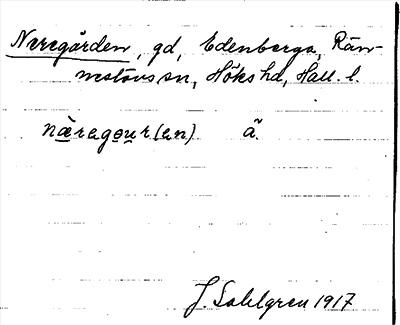 Neregården, gd, Edenberga, Rän-
neslövs sn, Höks hd, Hall. l.
næ̀ragɷur(en) ã.
J. Sahlgren 1917